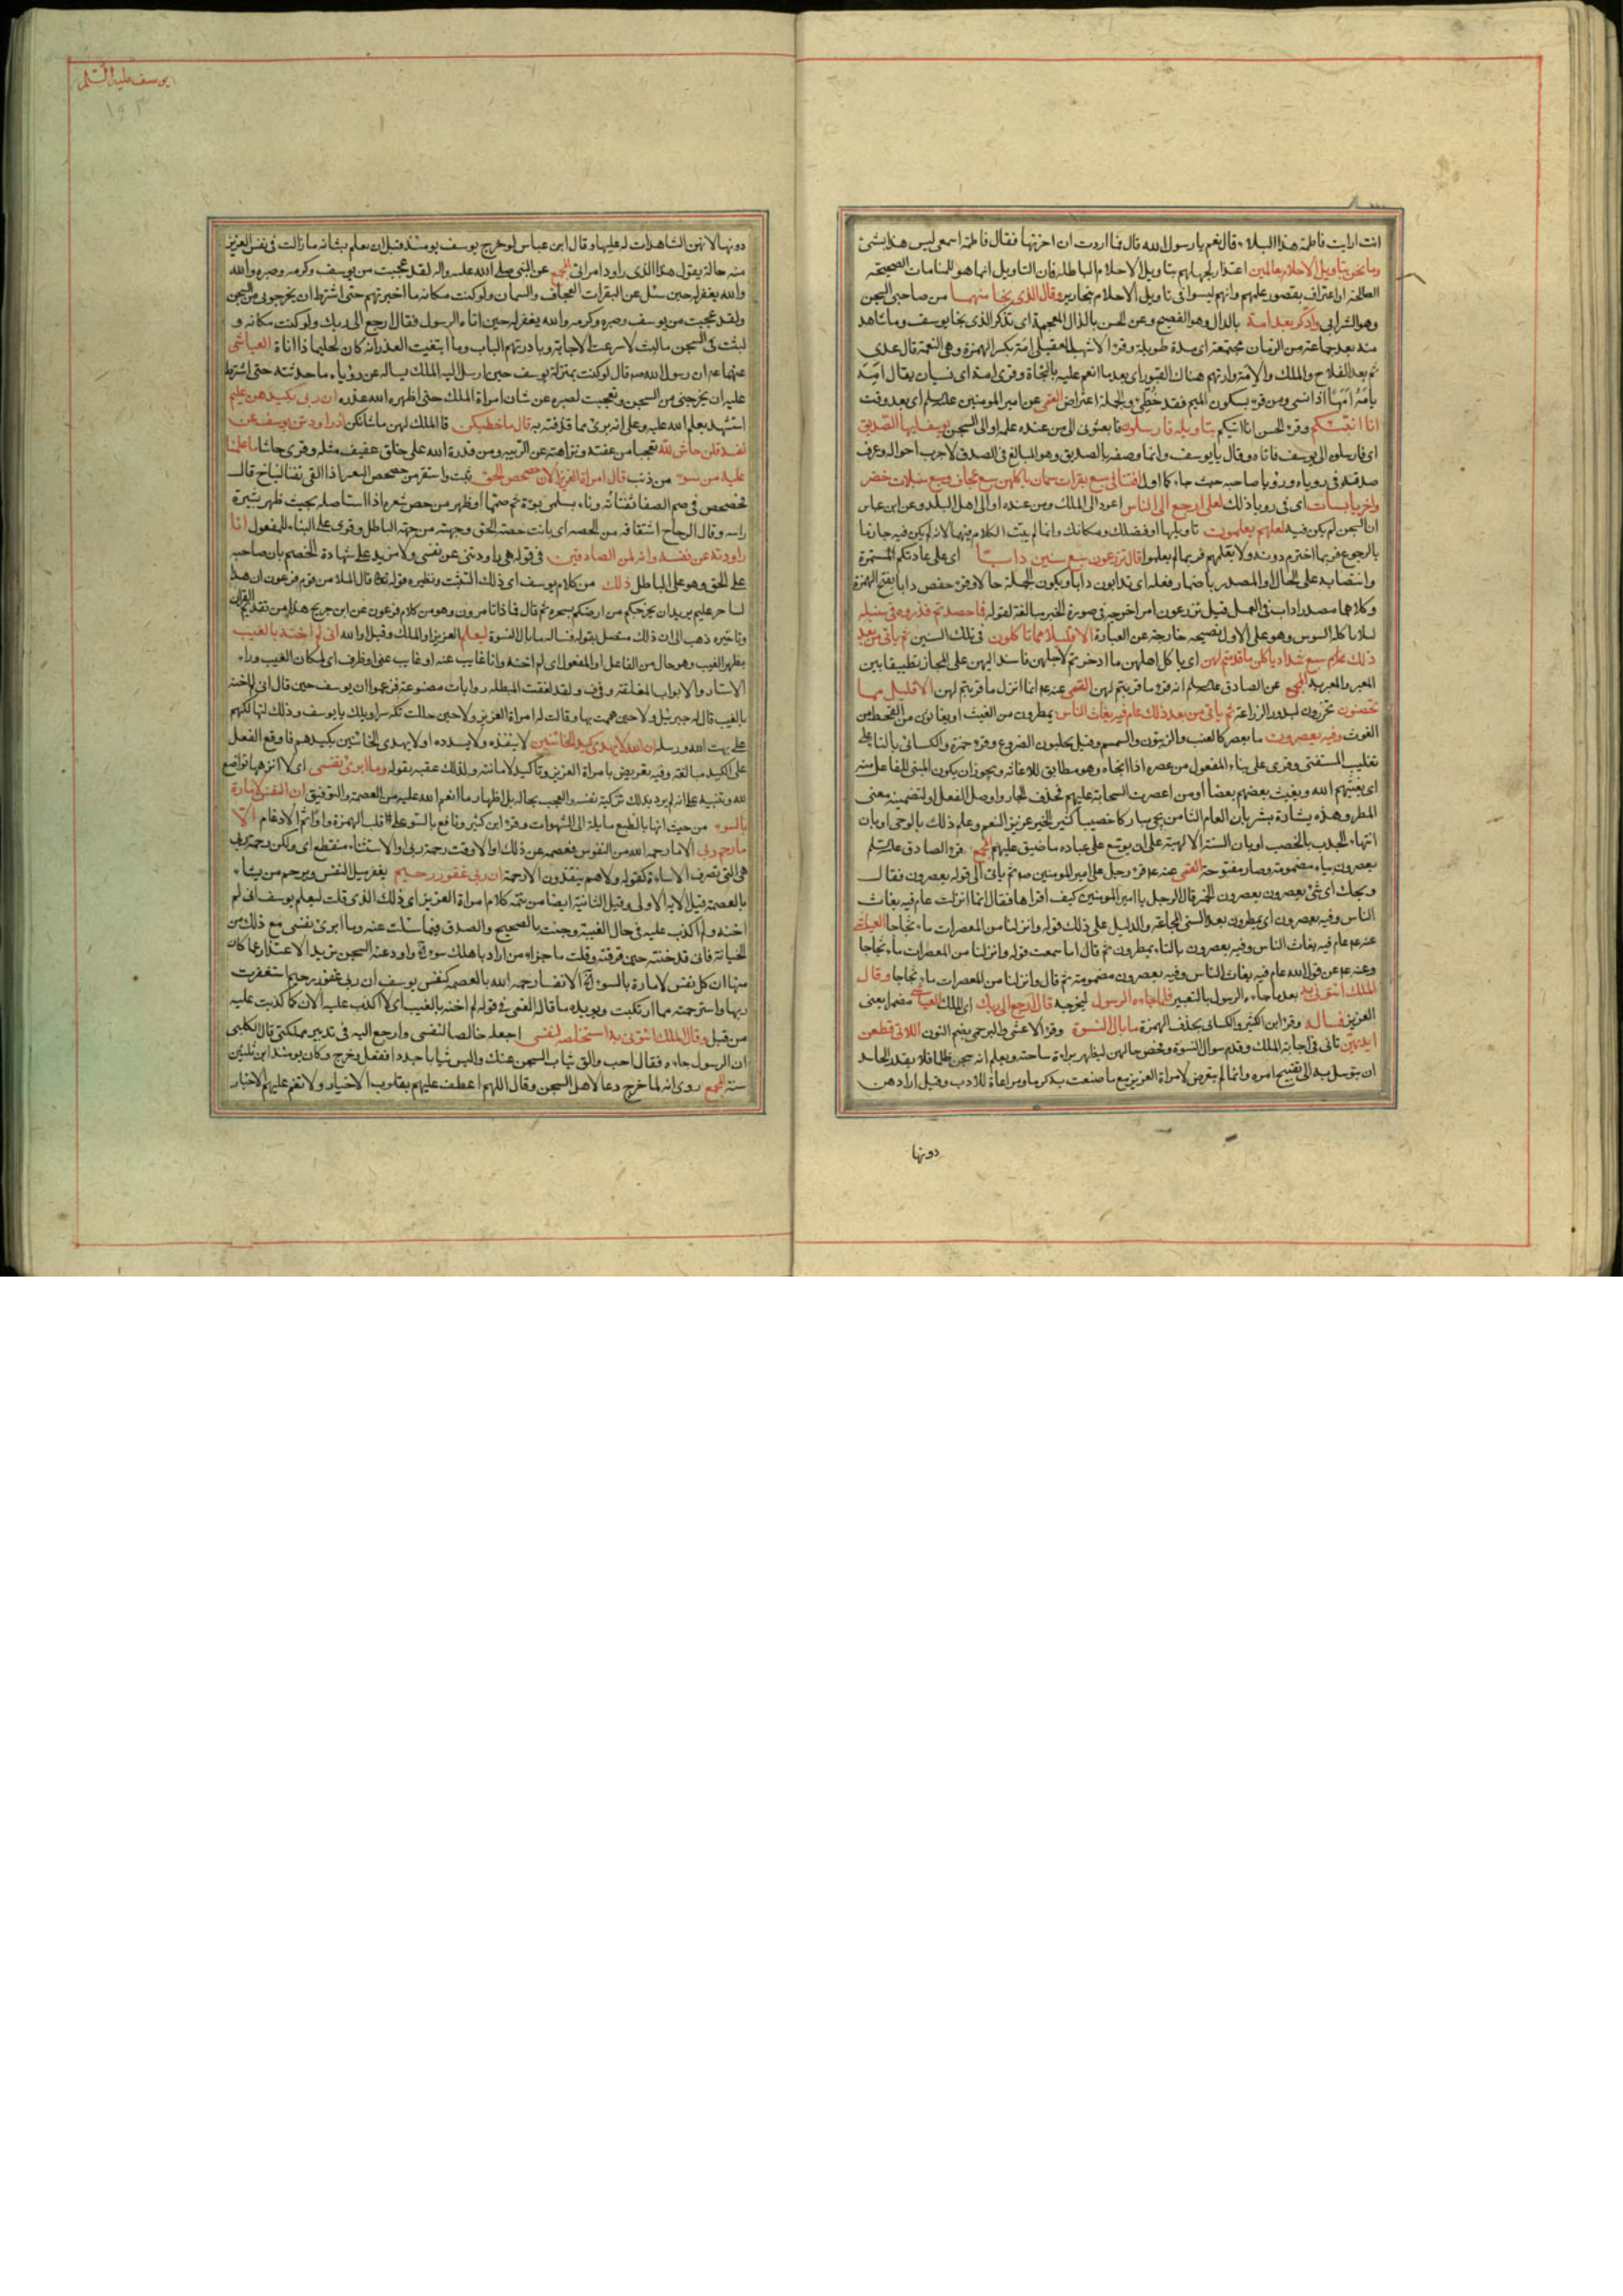 انت ارايت فاطمة هذا البلاء قال نعم يا رسول الله قال فما اردت ان احزنها فقال فاطمة اسمعى ليس هذا بشئ
وما نحن بتاويل الاحلام بعالمين اعتذار لجهلهم بتاويل الاحلام الباطلة فان التاويل انما هو للمنامات الصحيحة
او اعتراف بقصور علمهم وانهم ليسوا فى تاويل الاحلام بنحارير وقال الذى نجا منهما من صاحبى السجن
وهو الشرابى وادكر بعد امة بالدال وهو الفصيح وعن الحسن بالذال المعجمة اى تذكر الذى نجا يوسف وما شاهد
منه بعد جماعة من الزمان مجتمعة اى مدة طويلة وقرء الاشهب العقيلى امة بكسر الهمزة وهى النعمة قال عدى
ثم بعد الفلاح والملك والامة وارتهم هناك القبور اى بعد ما انعم عليه بالنجاة وقرى امه اى نسيان يقال امه
يامه امها اذا نسى ومن قرء بسكون الميم فقد خطئ والجملة اعتراض القمى عن امير المومنين اى بعد وقت
انا انبئكم وقرء الحسن انا اتيكم بتاويله فارسلون فابعثونى الى من عنده علمه او الى السجن يوسف ايها الصديق
اى فارسلوه الى يوسف فاتاه وقال يا يوسف وانما وصفه بالصديق وهو المبالغ فى الصدق لانه جرب احواله وعرف
صدقه فى روياه ورويا صاحبه حيث جاء كما اول افتنا فى سبع بقرات سمان ياكلهن سبع عجاف وسبع سنبلات خضر
واخر يابسات اى فى رويا ذلك لعلى ارجع الى الناس اعود الى الملك ومن عنده او الى اهل البلد وعن ابن عباس
ان السجن لم يكن فيه لعلهم يعلمون تاويلها او فضلك ومكانك وانما لم يبت الكلام فيهما لانه لم يكن فيه جازما
بالرجوع فربما اخترم دونه ولا بعلمهم فربما لم يعلموا قال تزرعون سبع سنين دابا اى على عادتكم المستمرة
وانتصابه على الحال او المصدر باضمار فعله اى تدابون دابا ويكون الجملة حالا وقرء حفص دابا بفتح الهمزة
وكلاهما مصدر داب فى العمل قيل تزرعون امر اخرجه فى صورة الخبر مبالغة لقوله فما حصدتم فذروه فى سنبله
لئلا ياكله السوس وهو على الاول نصيحة خارجة عن العبارة الا قليلا مما تاكلون فى تلك السنين ثم ياتى من بعد
ذلك سبع شداد ياكلن ما قدمتم لهن اى ياكل اهلهن ما ادخرتم لاجلهن فاسند اليهن على المجاز تطبيقا بين
المعبر والمعبر به المجمع عن الصادق انه قرء ما قربتم لهن القمى عنه انما انزل ما قربتم لهن الا قليلا مما
تحصنون تحرزون لبذور الزراعة ثم ياتى من بعد ذلك عام فيه يغاث الناس يمطرون من الغيث او يغاثون من القحط من
الغوث وفيه يعصرون ما يعصر كالعنب والزيتون والسمسم وقيل يحلبون الضروع وقرء حمزة والكسائى بالتاء على
تغليب المستفتى وقرى على بناء المفعول من عصره اذا انجاه وهو مطابق للاغاثة ويجوز ان يكون المبنى للفاعل منه
اى يغيثهم الله ويغيث بعضهم بعضا او من اعصرت السحابة عليهم فحذف الجار واوصل الفعل او لتضمينه معنى
المطر وهذه بشارة بشر بان العام الثامن يجئ مباركا خصيبا كثير الخير عزيز النعم وعلم ذلك بالوحى او بان
انتهاء الجدب بالخصب او بان السنة الالهية على ان يوسع على عباده ما ضيق عليهم المجمع قرء الصادق
يعصرون بياء مضمومة وصاد مفتوحة القمى عنه قرء رجل على امير المومنين ثم ياتى الى قوله يعصرون فقال
ويحك اى شئ يعصرون يعصرون الخمر قال الرجل يا امير المومنين كيف اقراها فقال انما انزلت عام فيه يغاث
الناس وفيه يعصرون اى يمطرون بعد السنى المجاعة والدليل على ذلك قوله وانزلنا من المعصرات ماء ثجاجا العياشى
عنه عام فيه يغاث الناس وفيه يعصرون بالتاء يمطرون ثم قال اما سمعت قوله وانزلنا من المعصرات ماء ثجاجا
وعنه عن قول الله عام فيه يغاث الناس وفيه يعصرون مضمومة ثم قال وانزلنا من المعصرات ماء ثجاجا وقال
الملك ائتونى به بعد ما جاءه الرسول بالتعبير فلما جاءه الرسول ليخرجه قال ارجع الى ربك اى الملك العياشى مضمر يعنى
العزيز فساله وقرء ابن الكثير والكسائى بحذف الهمزة ما بال النسوة وقرء الاعشى والبرجمى بضم النون اللاتى قطعن
ايديهن تانى فى اجابة الملك وقدم سوال النسوة وفحص حالهن ليظهر براءة ساحته ويعلم انه سجن ظلما فلا يقدر الحاسد
ان يتوسل به الى تقبيح امره وانما لم يتعرض لامراة العزيز مع ما صنعت به كرما ومراعاة للادب وقيل اراد هن
دونها
يوسف عليه السلام
١٩٣
دونها لانهن الشاهدات له عليها وقال ابن عباس لو خرج يوسف يومئذ قبل ان يعلم بشانه ما زالت فى نفس العزيز
منه حالة يقول هذا الذى راود امراتى المجمع عن النبى صلى الله عليه واله لقد عجبت من يوسف وكرمه وصبره والله
والله يغفر له حين سئل عن البقرات العجاف والسمان ولو كنت مكانه ما اخبرتهم حتى اشترط ان يخرجونى من السجن
ولقد عجبت من يوسف وصبره وكرمه والله يغفر له حين اتاه الرسول فقال ارجع الى ربك ولو كنت مكانه و
لبثت فى السجن ما لبث لاسرعت الاجابة وبادرتهم الباب وما ابتغيت العذر انه كان لحليما ذا اناة العياشى
عنهما ان رسول الله قال لو كنت بمنزلة يوسف حين ارسل اليه الملك يساله عن روياه ما حدثته حتى اشترط
عليه ان يخرجنى من السجن وتعجبت لصبره عن شان امراة الملك حتى اظهر الله عذره ان ربى بكيدهن عليم
استشهد بعلم الله عليه وعلى انه برئ مما قذفته به قال ما خطبكن قال الملك لهن ما شانكن اذ راودتن يوسف عن
نفسه قلن حاش لله تعجبا من عفته ونزاهته عن الريبة ومن قدرة الله على خلق عفيف مثله وقرى حاشا ما علمنا
عليه من سوء من ذنب قالت امراة العزيز الان حصحص الحق ثبت واستقر من حصحص البعير اذا القى ثفناته ليناخ قال
فحصحص فى صم الصفا ثفناته وناء بسلمى نوءة ثم صمما او ظهر من حص شعره اذا استاصله بحيث ظهر بشرة
راسه وقال الزجاج اشتقاقه من الحصة اى بانت حصة الحق وجهته من جهة الباطل وقرى على البناء للمفعول انا
راودته عن نفسه وانه لمن الصادقين فى قوله هى راودتنى عن نفسى ولا مزيد على شهادة الخصم بان صاحبه
على الحق وهو على الباطل ذلك من كلام يوسف اى ذلك التثبت ونظيره قوله قال الملا من قوم فرعون ان هذا
لساحر عليم يريد ان يخرجكم من ارضكم بسحره ثم قال فماذا تامرون وهو من كلام فرعون عن ابن جريج هذا من تقديم القران
وتاخيره ذهب الى ان ذلك متصل بقوله فساله ما بال النسوة ليعلم العزيز او الملك وقيل او الله انى لم اخنه بالغيب
بظهر الغيب وهو حال من الفاعل او المفعول اى لم اخنه وانا غايب عنه او غايب عنى او ظرف اى لمكان الغيب وراء
الاستار والابواب المغلقة ولقد لفقت المبطلة روايات مصنوعة فزعموا ان يوسف حين قال انى لم اخنه
بالغيب قال له جبرئيل ولا حين هممت بها وقالت له امراة العزيز ولا حين حللت تكة سراويلك يا يوسف وذلك لتهالكهم
على بهت الله ورسله ان الله لا يهدى كيد الخائنين لا ينفذه ولا يسدده او لا يهدى الخائنين بكيدهم فاوقع الفعل
على الكيد مبالغة وفيه تعريض بامراة العزيز وتاكيد لامانته ولذلك عقبه بقوله وما ابرئ نفسى اى لا انزهها تواضع
لله وتنبيه على انه لم يرد بذلك تزكية نفسه والعجب بحاله بل اظهار ما انعم الله عليه من العصمة والتوفيق ان النفس لامارة
بالسوء من حيث انها بالطبع مايلة الى الشهوات وقرء ابن كثير ونافع بالسو على قلب الهمزة واوا ثم الادغام الا
ما رحم ربى الا ما رحمه الله من النفوس فعصمه عن ذلك او الا وقت رحمة ربى او الاستثناء منقطع اى ولكن رحمة ربى
هى التى تصرف الاساءة كقوله ولا هم ينقذون الا رحمة ان ربى غفور رحيم يغفر ميل النفس ويرحم من يشاء
بالعصمة قيل الاية الاولى وقيل الثانية ايضا من تتمة كلام امراة العزيز اى ذلك الذى قلت ليعلم يوسف انى لم
اخنه ولم اكذب عليه فى حال الغيبة وجئت بالصحيح والصدق فيما سئلت عنه وما ابرئ نفسى مع ذلك من
الخيانة فانى قد خنته حين قرفته وقلت ما جزاء من اراد باهلك سوءا واودعته السجن تريد الاعتذار عما كان
منها ان كل نفس لامارة بالسوء الا نفسا رحمه الله بالعصمة كنفس يوسف ان ربى غفور رحيم استغفرت
ربها واسترحمته مما ارتكبت ويويده ما قاله القمى فى قوله لم اخنه بالغيب اى لا اكذب عليه الان كما كذبت عليه
من قبل وقال الملك ائتونى به استخلصه لنفسى اجعله خالصا لنفسى وارجع اليه فى تدبير مملكتى قال الكلبى
ان الرسول جاءه فقال اجب والق ثياب السجن عنك والبس ثيابا جددا ففعل وخرج وكان يومئذ ابن ثلثين
سنة المجمع روى انه لما خرج دعا لاهل السجن وقال اللهم اعطف عليهم بقلوب الاخيار ولا تغم عليهم الاخبار